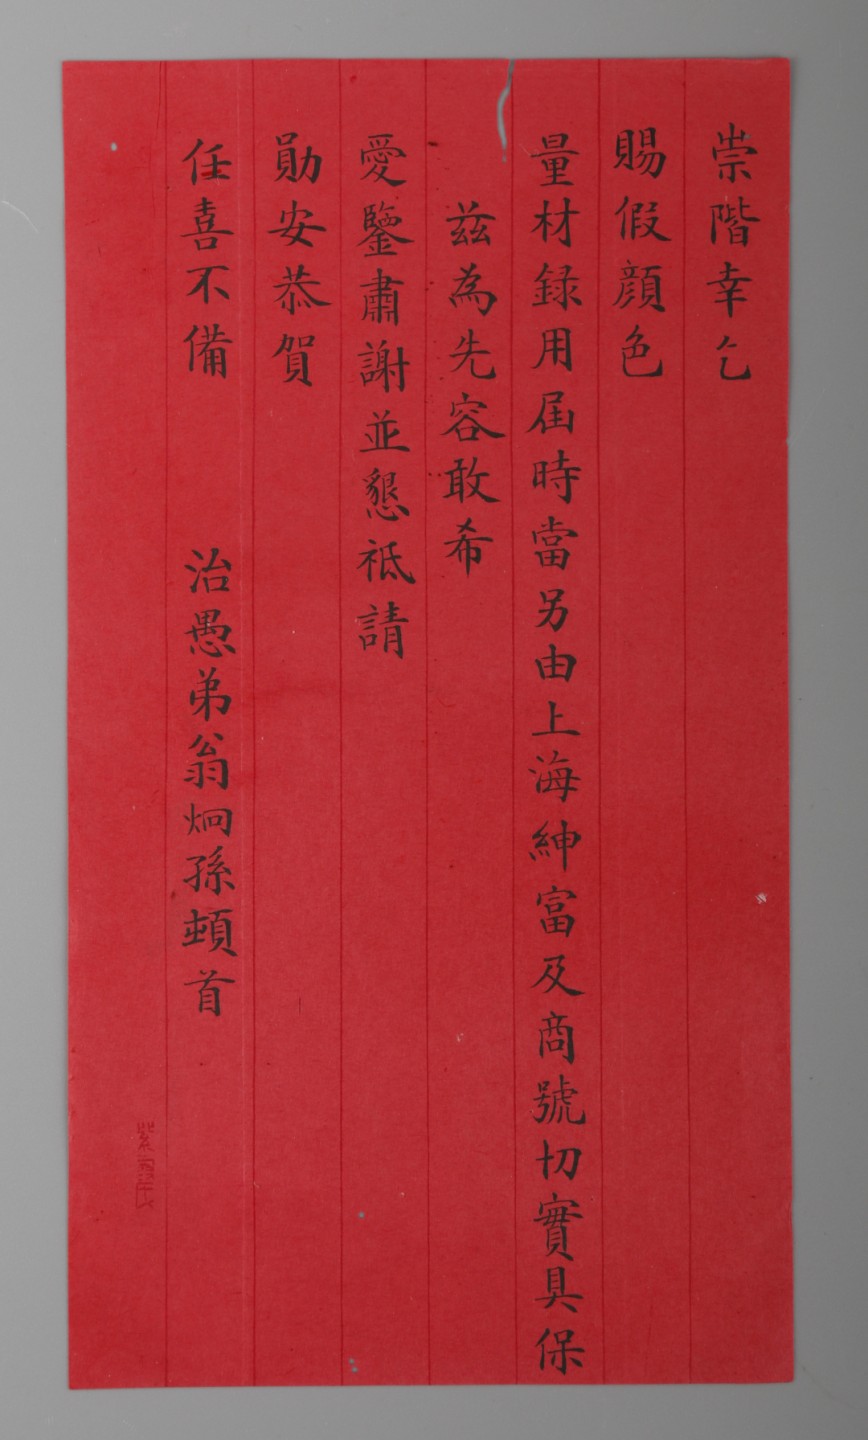 崇階幸乞
賜假顔色
量材録用屆時當另由上海紳富及商號切實具保
茲為先容敢希
愛鑒肅謝並懇祗請
勛安恭賀
任喜不備　治愚弟翁炯孫頓首